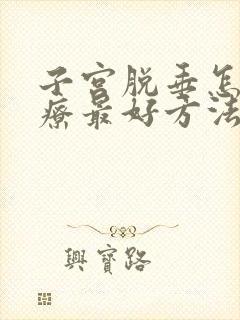 子宫脱垂怎
疗最好方法
興寶路